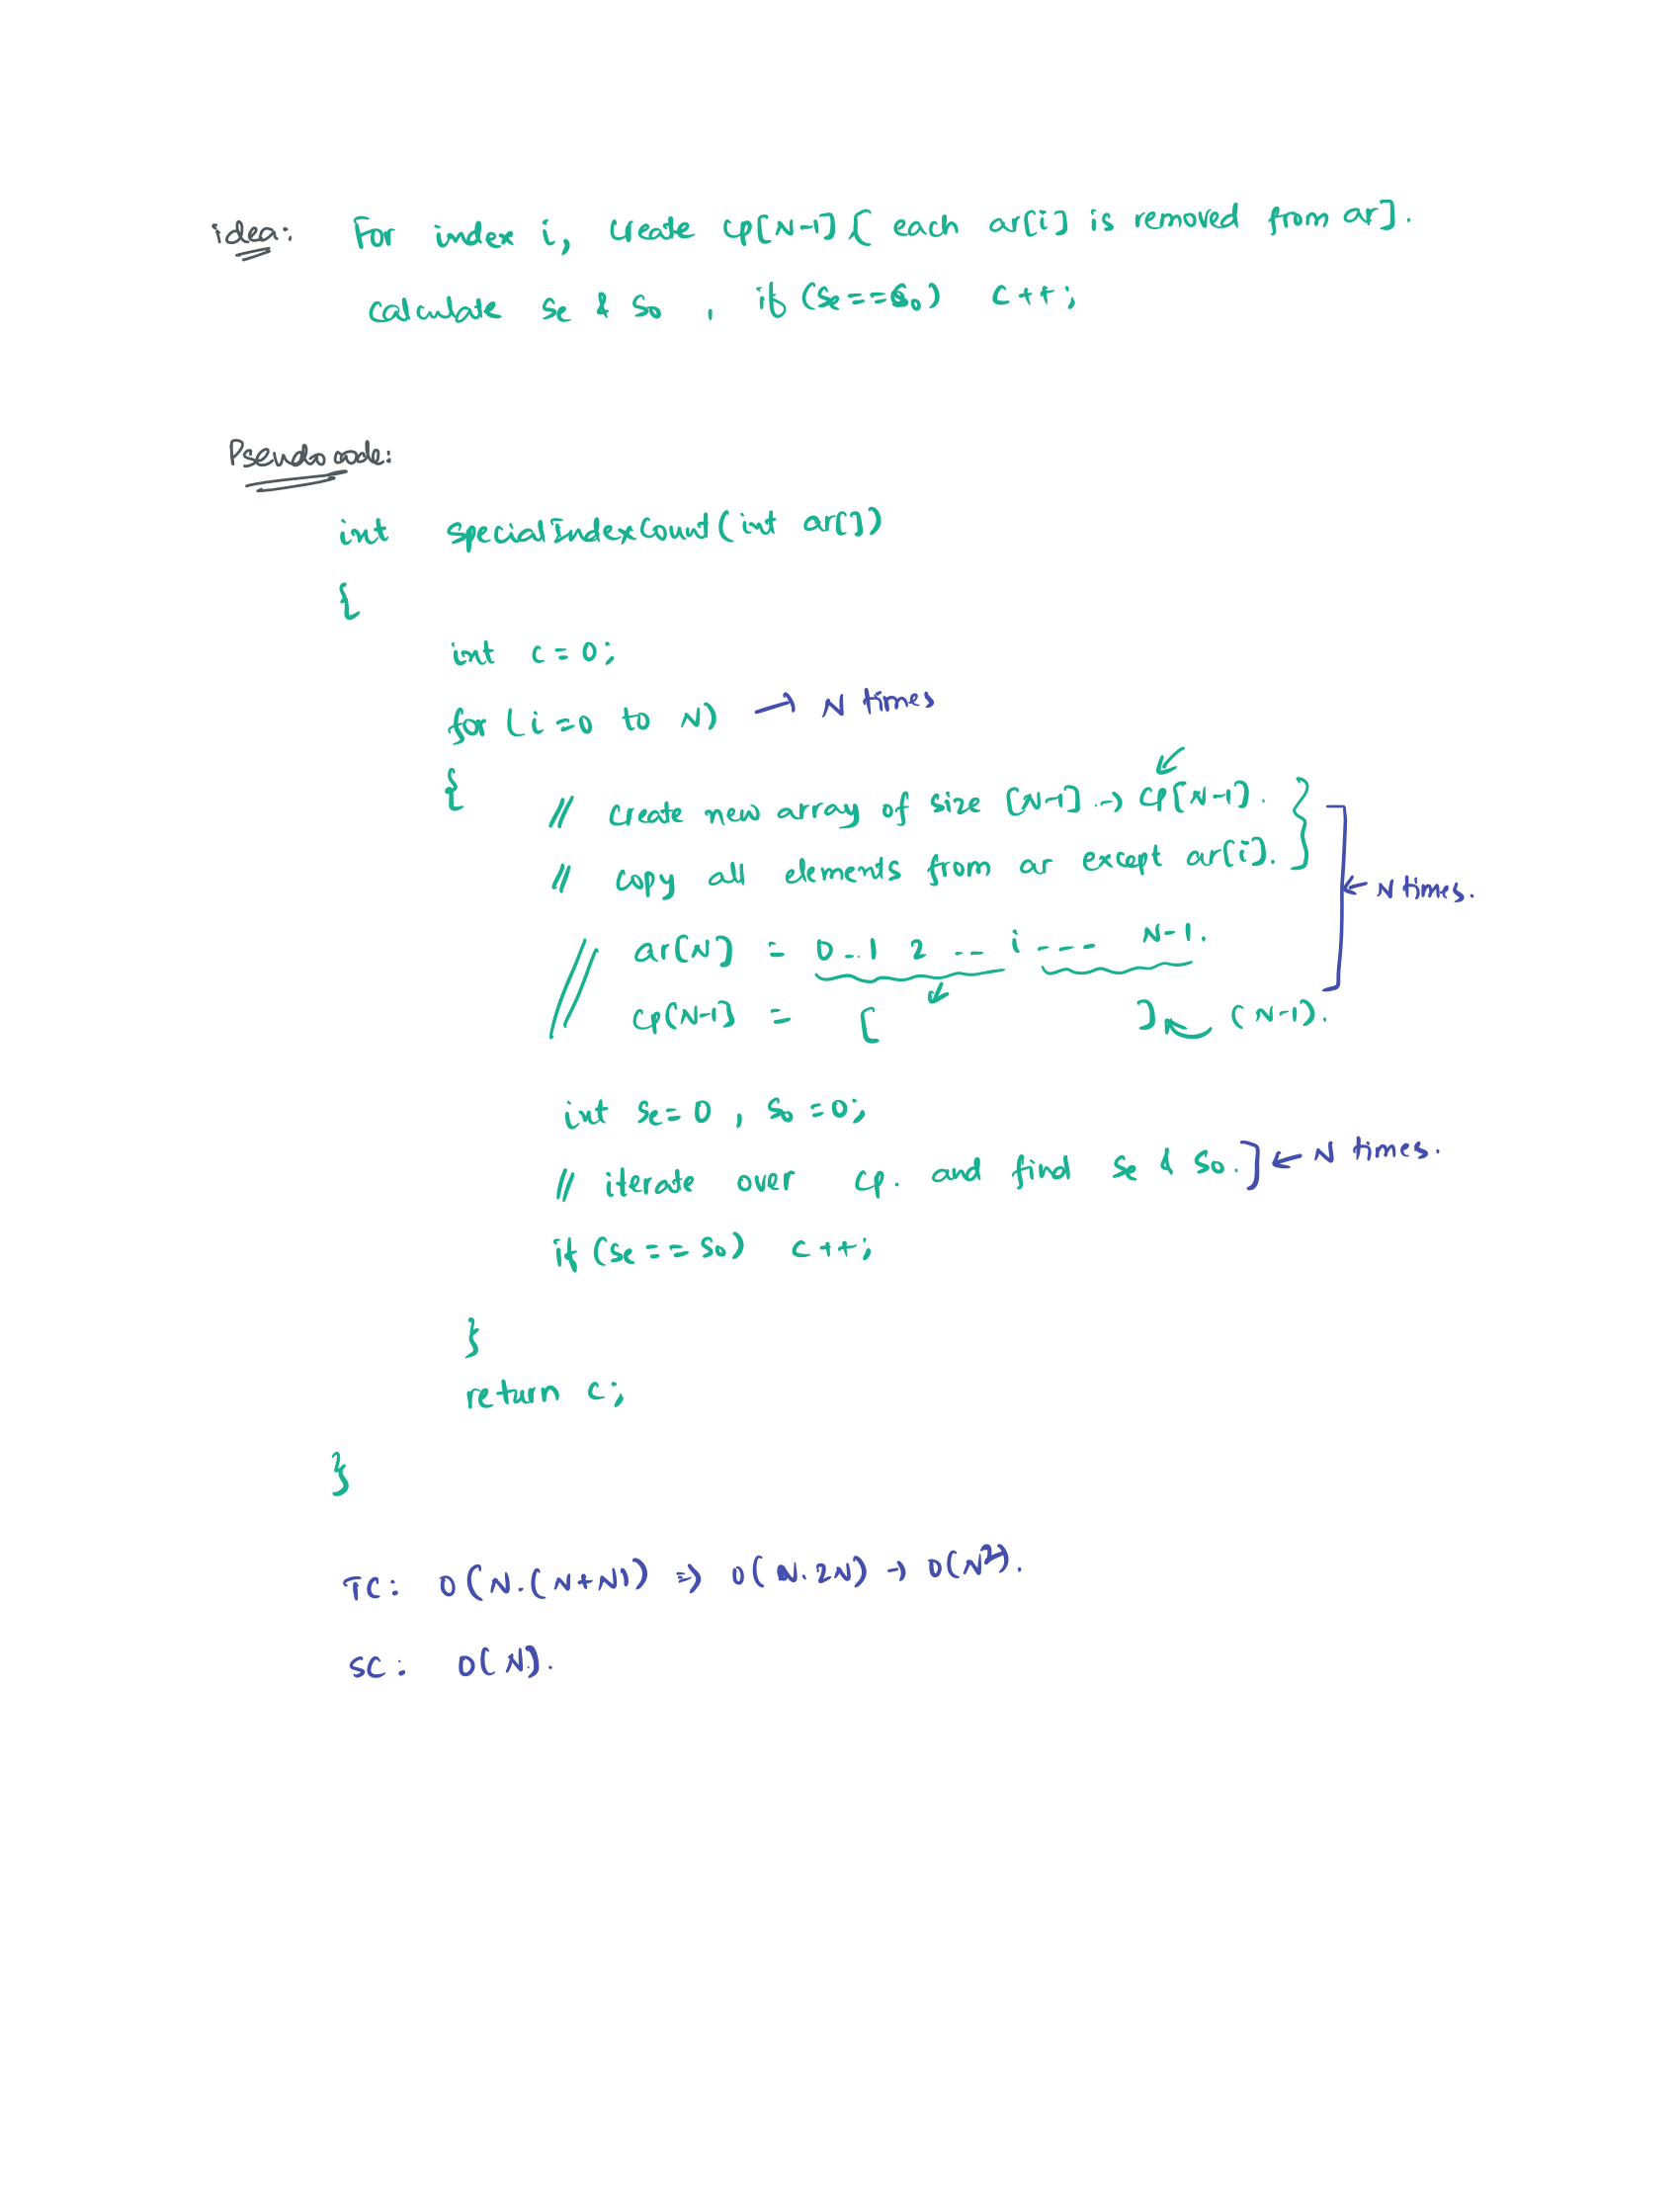 idea: For index i, create cp[N-1] { each ar[i] is removed from ar].
calculate Se & So , if (Se==So) c++;
Pseudo code:
int specialIndexCount(int ar[])
{
int c=0;
for (i=0 to N) → N times
{
// create new array of size [N-1] → cp[N-1].
// copy all elements from ar except ar[i].
← N times.
// ar[N] = 0 .. 1 2 -- i --- N-1.
cp[N-1] = [ ] (N-1).
int Se=0 , So=0;
// iterate over cp. and find Se & So. ] ← N times.
if (Se==So) c++;
}
return c;
}
TC: O(N.(N+N)) => O(N.2N) → O(N²).
SC: O(N).